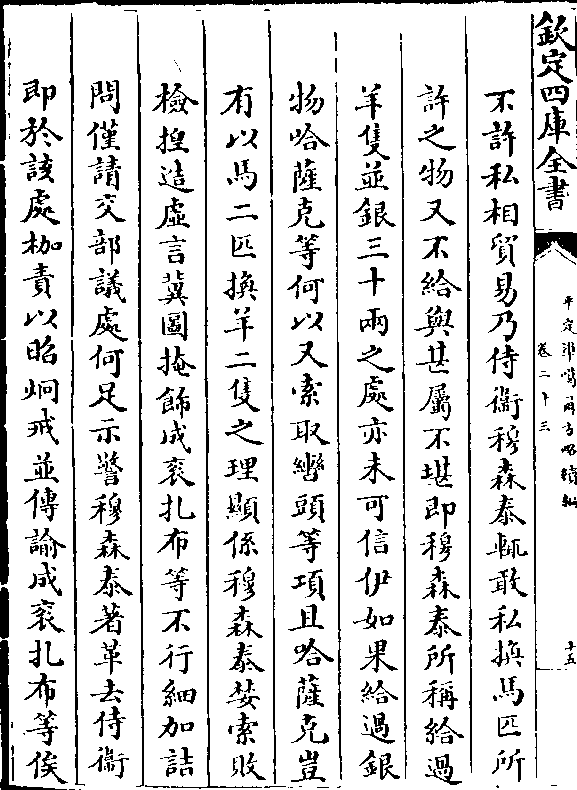 欽定四庫全書
平定準噶爾方略續編
卷二十三
十五
不許私相貿易乃侍衛穆森泰輒敢私換馬匹所
許之物又不給與甚屬不堪即穆森泰所稱給過
羊隻並銀三十兩之處亦未可信伊如果給過銀
物哈薩克等何以又索取轡頭等項且哈薩克豈
有以馬二匹換羊二隻之理顯係穆森泰婪索敗
檢捏造虛言冀圖掩飾成衮扎布等不行細加詰
問僅請交部議處何足示警穆森泰著革去侍衛
即於該處枷責以昭炯戒並傳諭成衮扎布等俟